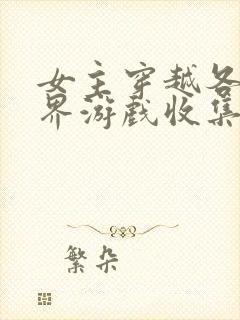 女主穿越各
界游戏收集
繁朵